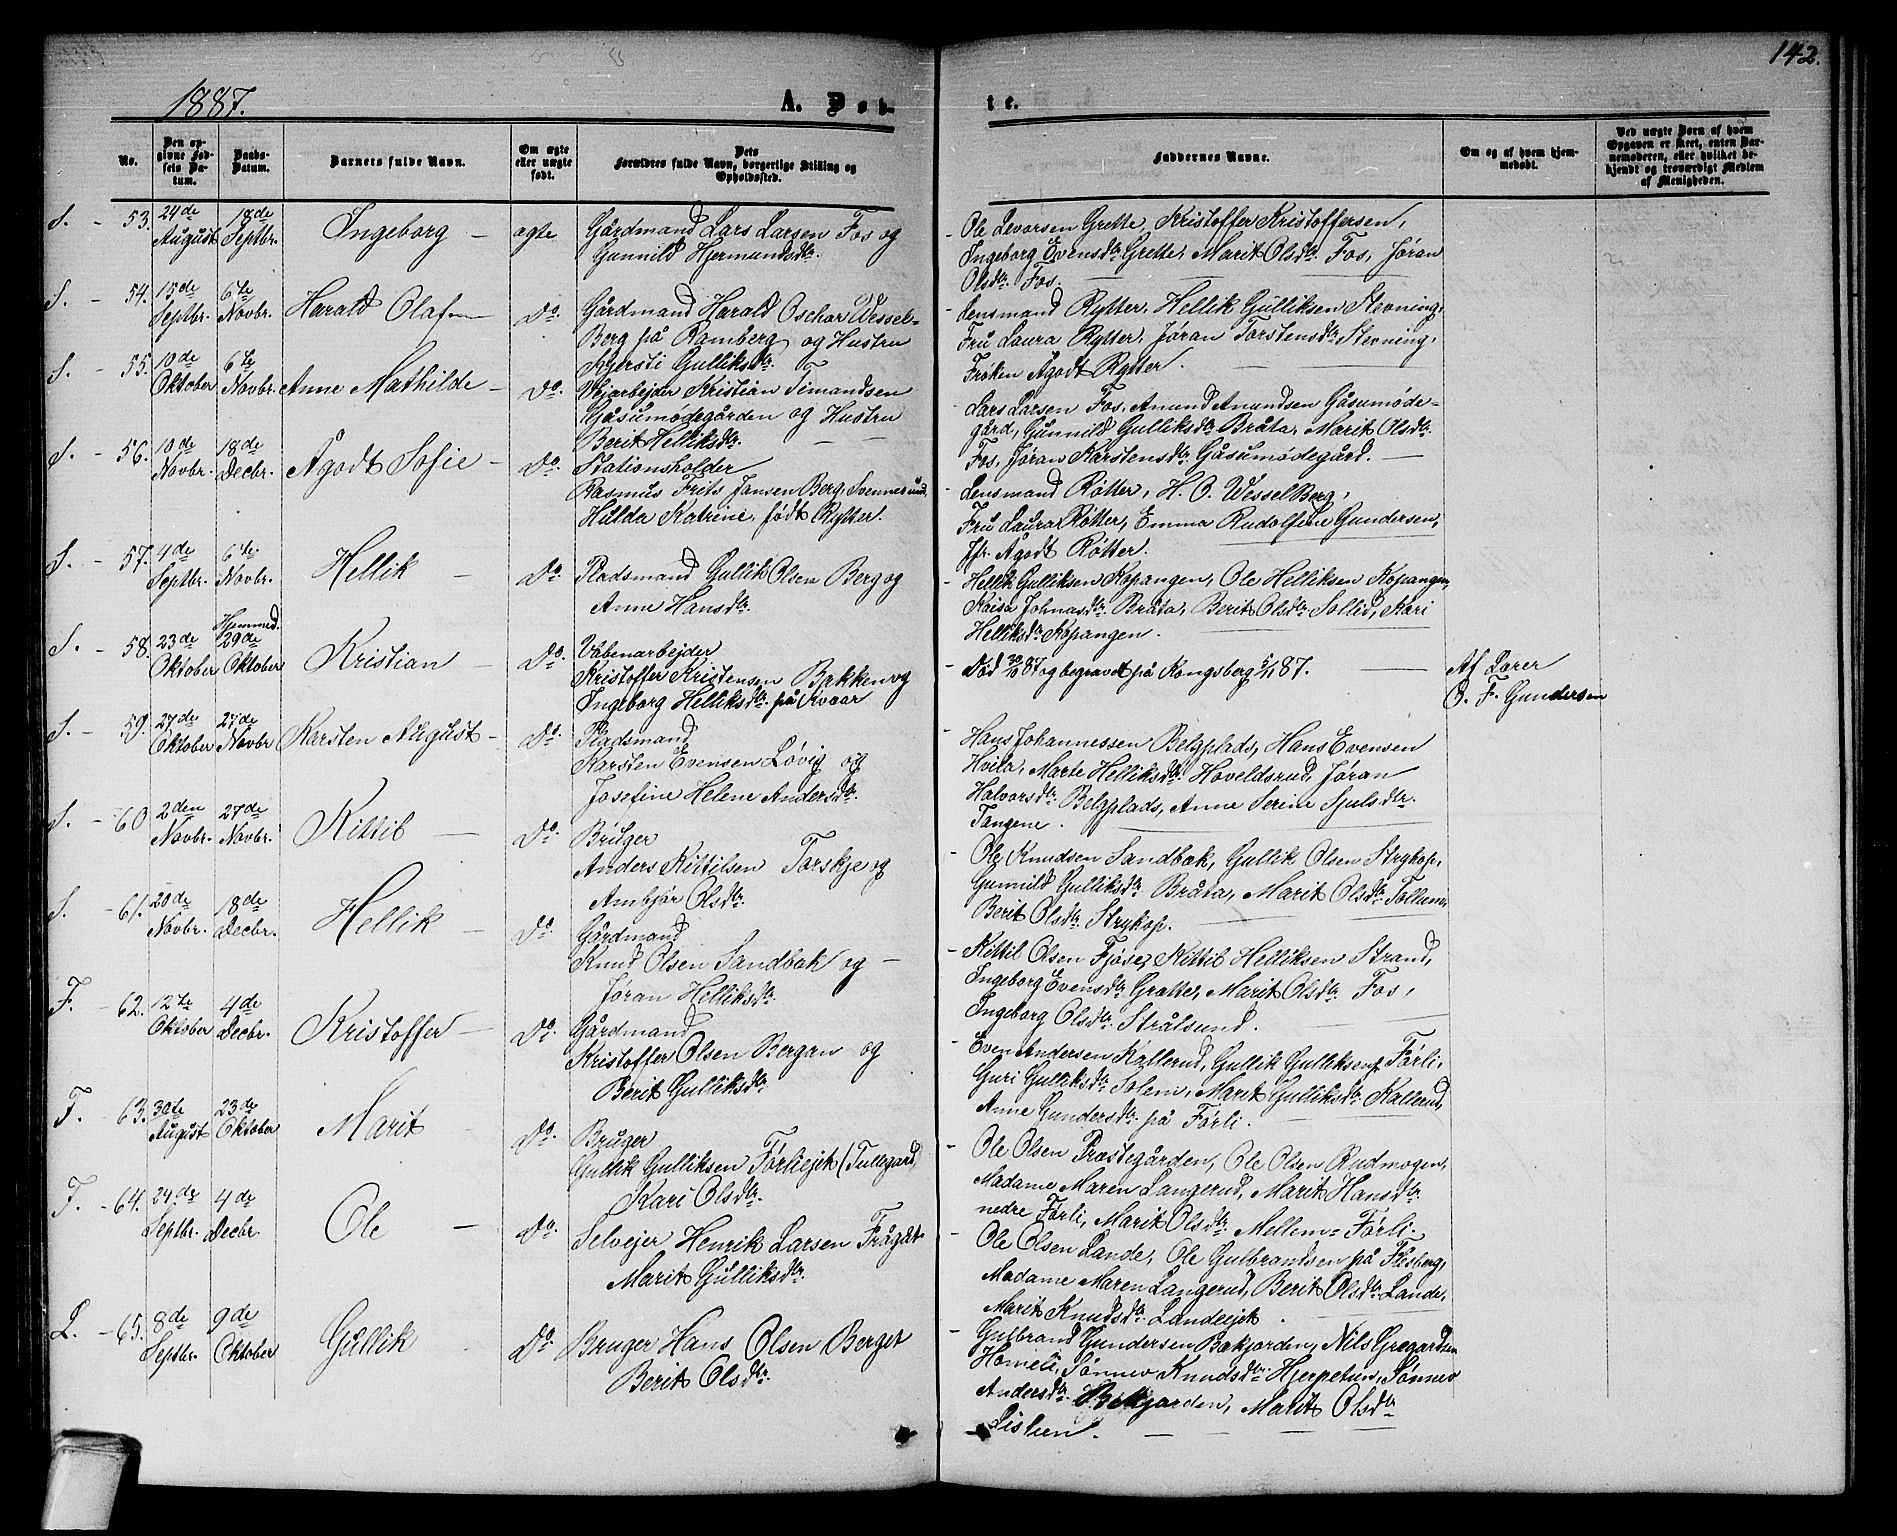 142.
1887.
A. Døb-
te.
No.
Den opgivne Fødsels Datum.
Daabs-Datum.
Barnets fulde Navn.
Om ægte eller uægte født.
Dets Forældres fulde Navn, borgerlige Stilling og Opholdssted.
Faddernes Navne.
Om og af hvem hjemmedøbt.
Ved uægte Børn af hvem Opgaven er skeet, enten Barnemoderen, eller hvilket bekjendt og troværdigt Medlem af Menigheden.
S. - 53. 24de August 18de Septbr. Ingeborg - ægte
Gårdmand Lars Larsen Fos og
Gunnild Hjermundsdtr.
- Ole Levorsen Grette, Kristoffer Kristoffersen,
Ingeborg Evensdtr Grette, Marit Olsdtr. Fos, Jøran
Olsdtr. Fos.
S. - 54. 15de Septbr. 6te Novbr. Harald Olaf - Do.
Gårdmand Harald Oschar Wessel-
Berg på Ramberg og Hustru
Kjersti Gulliksdtr.
- Lensmand Rytter, Hellik Gulliksen Stevning,
Fru Laura Rytter, Jøran Torstensdtr Stevning,
Frøken Ågodt Rytter.
S. - 55. 10de Oktober 6te Novbr. Anne Mathilde - Do.
Vejarbejder Kristian Simandsen
Gåsumødegården og Hustru
Berit Helliksdtr.
Lars Larsen Fos, Amund Amundsen Gåsumøde-
gård, Gunnild Gulliksdtr Bråta, Marit Olsdtr.
Fos, Jøran Karstensdtr Gåsumødegård.
S. - 56. 10de Novbr. 18de Decbr. Ågodt Sofie - Do.
Stationsholder
Rasmus Frits Jansen Berg, Svennesund,
Hulda Katrine, født Rytter.
- Lensmand Røtter, H. O. Wessel Berg,
Fru Laura Røtter, Emma Rudolfine Gundersen,
Jfr. Ågodt Røtter.
S. - 57. 4de Septbr. 6te Novbr. Hellik - Do.
Pladsmand Gullik Olsen Berg og
Anne Hansdtr.
- Hellik Gulliksen Kopangen, Ole Helliksen Kopangen,
Kaisa Johnasdtr. Bråta, Berit Olsdtr Sollid, Kari
Helliksdtr Kopangen.
S. - 58. 23de Oktober Hjemmed. 29de Oktober Kristian - Do.
Våbenarbejder
Kristoffer Kristensen Bakken og
Ingeborg Helliksdtr. på Kvaar
- Død 30/10 87 og begravet på Kongsberg 5/11 87.
Af Lærer
O. F. Gundersen
S. - 59. 27de Oktober 27de Novbr Karsten August - Do.
Pladsmand
Karsten Evensen Løvig og
Josefine Helene Andersdtr.
- Hans Johannessen Belgplads, Hans Evensen
Hvila, Marte Helliksdtr. Hoveldsrud, Jøran
Halvorsdtr. Belgplads, Anne Serine Sjulsdtr.
Tangene.
S. - 60 2den Novbr. 27de Novbr. Kittil - Do.
Bruger
Anders Kittilsen Torskje og
Ambjør Olsdtr.
- Ole Knudsen Sandbæk, Gullik Olsen Strykop,
Gunnild Gulliksdtr. Bråta, Marit Olsdtr. Tollum,
Berit Olsdtr. Strykop.
S. - 61. 20de Novbr. 18de Decbr. Hellik - Do.
Gårdmand
Knud Olsen Sandbæk og -
Jøran Helliksdtr.
- Kittil Olsen Fjøse, Kittil Helliksen Strand,
Ingeborg Evensdtr Grette, Marit Olsdtr. Fos,
Ingeborg Olsdtr. Strålsund.
F. - 62. 12te Oktober 4de Decbr. Kristoffer - Do.
Gårdmand
Kristoffer Olsen Bergan og
Berit Gulliksdtr
- Even Andersen Kallerud, Gullik Gulliksen Førli,
Guri Gulliksdtr. Solem, Marit Gulliksdtr. Kallerud,
Anne Gundersdtr. på Førli.
F. - 63. 30te August 23de Oktober Marit - Do.
Bruger
Gullik Gulliksen Førliejet (Tullegard)
Kari Olsdtr.
- Ole Olsen Præstegården, Ole Olsen Rudmogen,
Madame Maren Langerud, Marit Hansdtr.
nedre Førli, Marit Olsdtr. Mellem-Førli.
F. - 64. 24de Septbr. 4de Decbr. Ole - Do.
Selvejer Henrik Larsen Trågåt
Marit Gulliksdtr.
- Ole Olsen Lande, Ole Gulbrandsen på Flesberg,
Madame Maren Langerud, Berit Olsdtr. Lande,
Marit Knudsdtr. Landeejet.
L. - 65. 8de Septbr. 9de Oktober Gullik Do.
Bruger Hans Olsen Berget
Berit Olsdtr.
- Gulbrand Gundersen Bækjorden, Nils Gregardsen
Homeli, Sønnev Knudsdtr. Hjerpetun, Sønnev
Andersdtr. Bækjorden, Marit Olsdtr
Listuen.